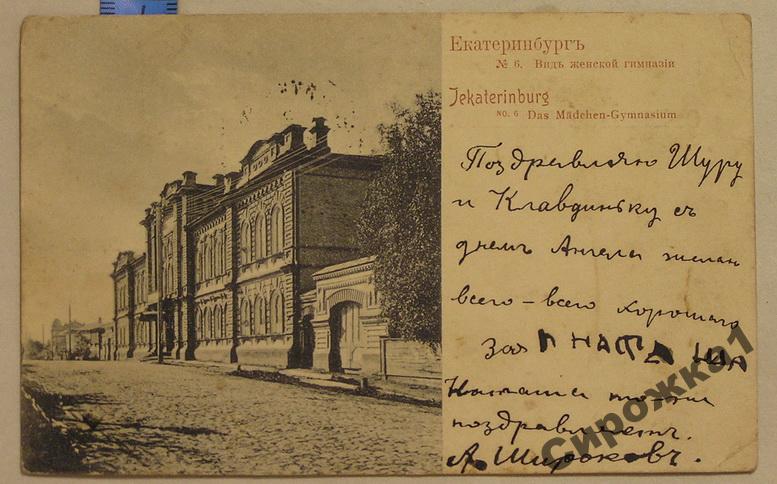 Екатеринбургъ
№ 6. Видъ женской гимназіи
Jekaterinburg
NO. 6 Das Mädchen-Gymnasium
Поздравляю Шуру
и Клавдиньку съ
днемъ Ангела желаю
всего-всего хорошаго
НАТАША
Наташа то-же
поздравляетъ.
А. Широковъ.
Сирожка1